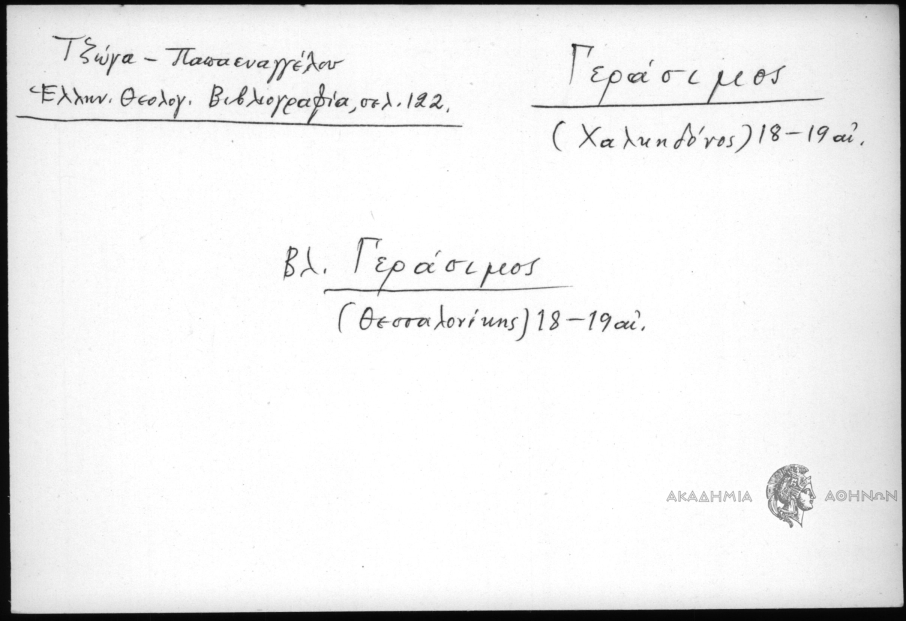 Τζώγα – Παπαευαγγέλου
Ἑλλην. Θεολογ. Βιβλιογραφία, σελ. 122.
Γεράσιμος
(Χαλκηδόνος) 18–19 αἰ.
Βλ. Γεράσιμος
(Θεσσαλονίκης) 18–19 αἰ.
ΑΚΑΔΗΜΙΑ ΑΘΗΝΩΝ